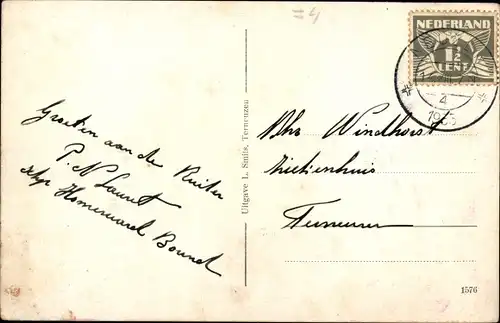 # 4
NEDERLAND
1½
CENT
4
Groeten aan de Ruiter
P. N. Lauret
schip Homeward Bound
Uitgave L. Smits, Terneuzen
Dhr Windhorst
Ziekenhuis
Terneuzen
1576